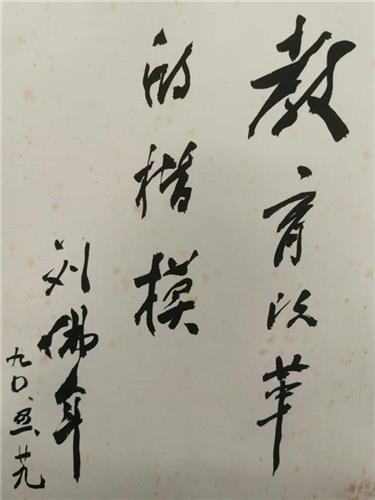 教育改革
的楷模
刘佛年
九〇.五.廿九